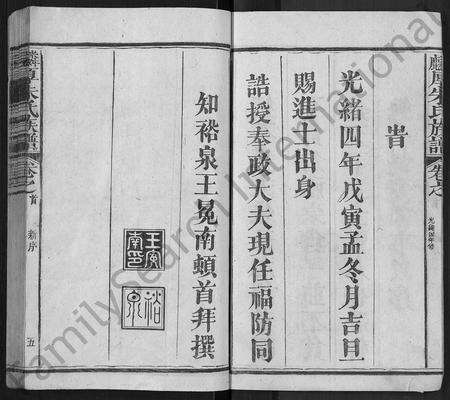 麟原朱氏族譜 卷之首
光緒四年修
旹
光緒四年戊寅孟冬月吉旦
賜進士出身
誥授奉政大夫現任福防同
知裕泉王冕南頓首拜撰
王冕南印
裕泉
麟原朱氏族譜 卷之首 新序 五
FamilySearch International